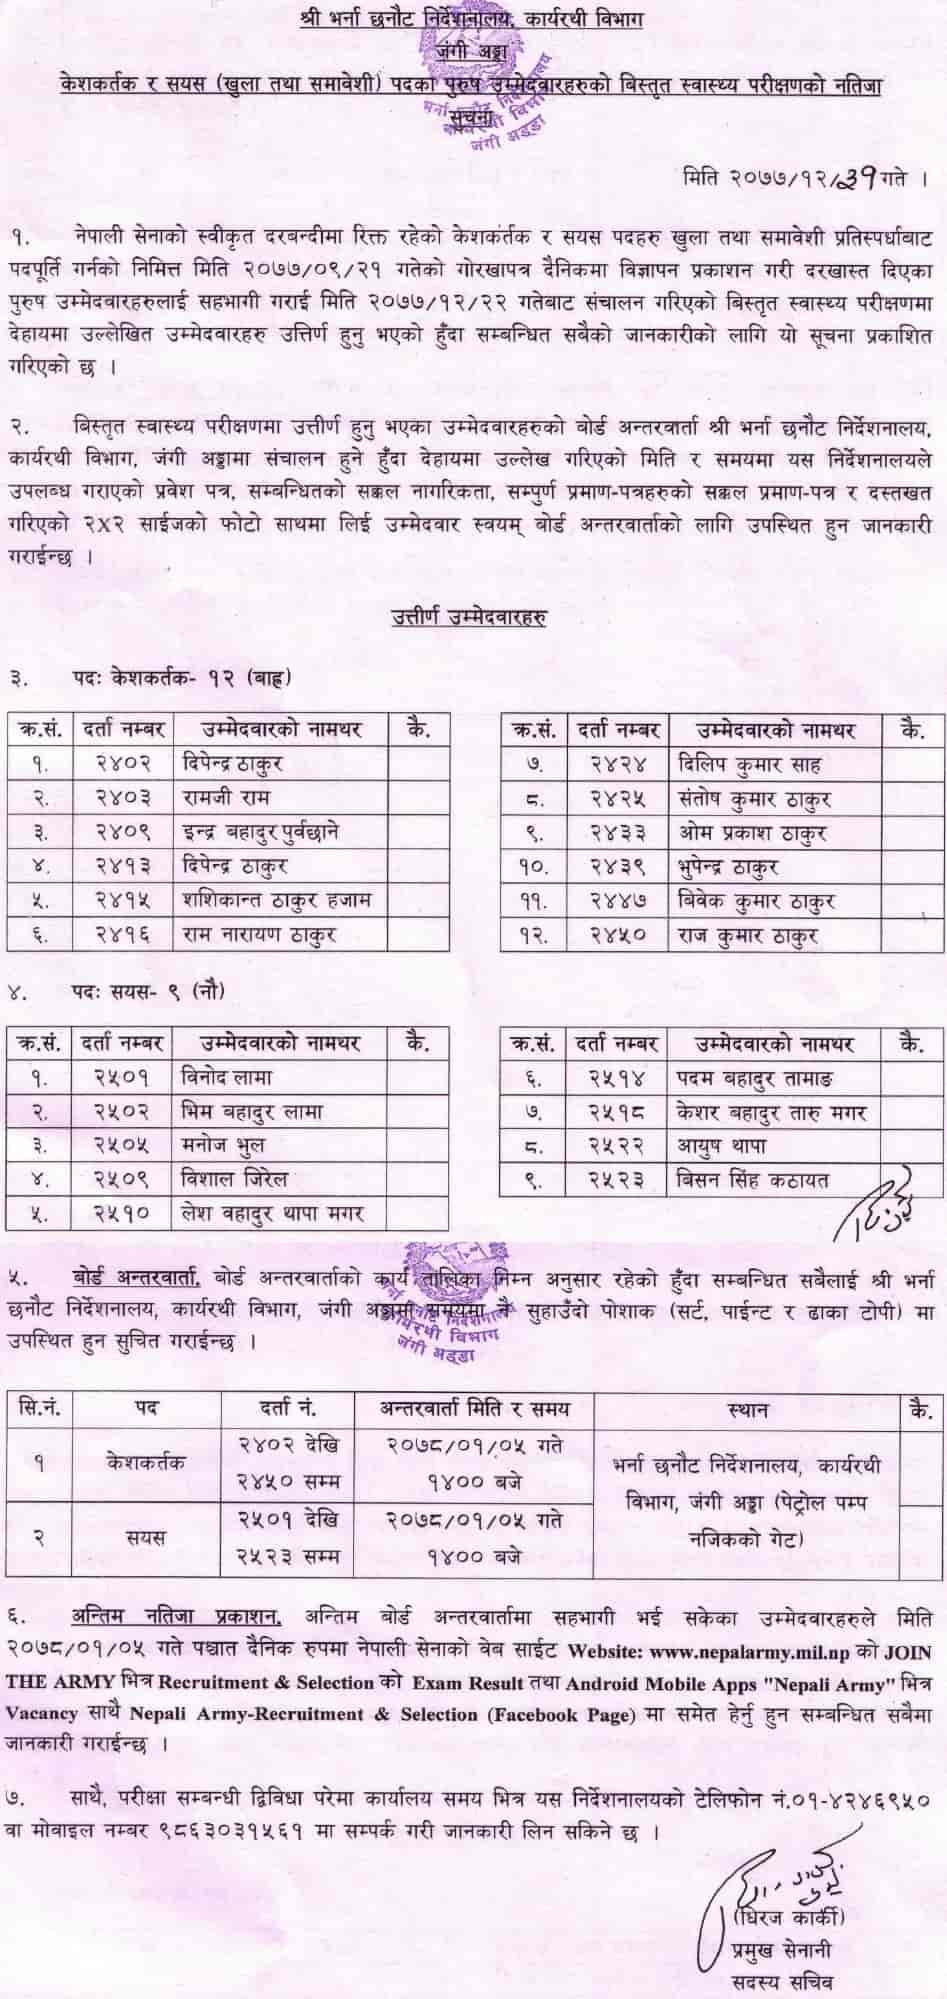 श्री भर्ना छनौट निर्देशनालय, कार्यरथी विभाग
जंगी अड्डा
केशकर्तक र सयस (खुला तथा समावेशी) पदका पुरुष उम्मेदवारहरुको बिस्तृत स्वास्थ्य परीक्षणको नतिजा
सुचना
भर्ना छनौट निर्देशनालय
कार्यरथी विभाग
जंगी अड्डा
मिति २०७७/१२/३१ गते ।
१. नेपाली सेनाको स्वीकृत दरबन्दीमा रिक्त रहेको केशकर्तक र सयस पदहरु खुला तथा समावेशी प्रतिस्पर्धाबाट
पदपूर्ति गर्नको निमित्त मिति २०७७/०९/२१ गतेको गोरखापत्र दैनिकमा विज्ञापन प्रकाशन गरी दरखास्त दिएका
पुरुष उम्मेदवारहरुलाई सहभागी गराई मिति २०७७/१२/२२ गतेबाट संचालन गरिएको बिस्तृत स्वास्थ्य परीक्षणमा
देहायमा उल्लेखित उम्मेदवारहरु उत्तिर्ण हुनु भएको हुँदा सम्बन्धित सबैको जानकारीको लागि यो सूचना प्रकाशित
गरिएको छ ।
२. बिस्तृत स्वास्थ्य परीक्षणमा उत्तीर्ण हुनु भएका उम्मेदवारहरुको बोर्ड अन्तरवार्ता श्री भर्ना छनौट निर्देशनालय,
कार्यरथी विभाग, जंगी अड्डामा संचालन हुने हुँदा देहायमा उल्लेख गरिएको मिति र समयमा यस निर्देशनालयले
उपलब्ध गराएको प्रवेश पत्र, सम्बन्धितको सक्कल नागरिकता, सम्पुर्ण प्रमाण-पत्रहरुको सक्कल प्रमाण-पत्र र दस्तखत
गरिएको २X२ साईजको फोटो साथमा लिई उम्मेदवार स्वयम् बोर्ड अन्तरवार्ताको लागि उपस्थित हुन जानकारी
गराईन्छ ।
उत्तीर्ण उम्मेदवारहरु
३. पदः केशकर्तक- १२ (बाह्र)
क्र.सं. दर्ता नम्बर उम्मेदवारको नामथर कै.
१. २४०२ दिपेन्द्र ठाकुर
२. २४०३ रामजी राम
३. २४०९ इन्द्र बहादुर पुर्वछाने
४. २४१३ दिपेन्द्र ठाकुर
५. २४१५ शशिकान्त ठाकुर हजाम
६. २४१६ राम नारायण ठाकुर
क्र.सं. दर्ता नम्बर उम्मेदवारको नामथर कै.
७. २४२४ दिलिप कुमार साह
८. २४२५ संतोष कुमार ठाकुर
९. २४३३ ओम प्रकाश ठाकुर
१०. २४३९ भुपेन्द्र ठाकुर
११. २४४७ बिवेक कुमार ठाकुर
१२. २४५० राज कुमार ठाकुर
४. पदः सयस- ९ (नौ)
क्र.सं. दर्ता नम्बर उम्मेदवारको नामथर कै.
१. २५०१ विनोद लामा
२. २५०२ भिम बहादुर लामा
३. २५०५ मनोज भुल
४. २५०९ विशाल जिरेल
५. २५१० लेश वहादुर थापा मगर
क्र.सं. दर्ता नम्बर उम्मेदवारको नामथर कै.
६. २५१४ पदम बहादुर तामाङ
७. २५१८ केशर बहादुर तारु मगर
८. २५२२ आयुष थापा
९. २५२३ बिसन सिंह कठायत
५. बोर्ड अन्तरवार्ता. बोर्ड अन्तरवार्ताको कार्य तालिका निम्न अनुसार रहेको हुँदा सम्बन्धित सबैलाई श्री भर्ना
छनौट निर्देशनालय, कार्यरथी विभाग, जंगी अड्डामा समयमा नै सुहाउँदो पोशाक (सर्ट, पाईन्ट र ढाका टोपी) मा
उपस्थित हुन सुचित गराईन्छ ।
भर्ना छनौट निर्देशनालय
कार्यरथी विभाग
जंगी अड्डा
सि.नं. पद दर्ता नं. अन्तरवार्ता मिति र समय स्थान कै.
१ केशकर्तक २४०२ देखि २४५० सम्म २०७८/०१/०५ गते १४०० बजे
२ सयस २५०१ देखि २५२३ सम्म २०७८/०१/०५ गते १४०० बजे
भर्ना छनौट निर्देशनालय, कार्यरथी
विभाग, जंगी अड्डा (पेट्रोल पम्प
नजिकको गेट)
६. अन्तिम नतिजा प्रकाशन. अन्तिम बोर्ड अन्तरवार्तामा सहभागी भई सकेका उम्मेदवारहरुले मिति
२०७८/०१/०५ गते पश्चात दैनिक रुपमा नेपाली सेनाको वेब साईट Website: www.nepalarmy.mil.np को JOIN
THE ARMY भित्र Recruitment & Selection को Exam Result तथा Android Mobile Apps "Nepali Army" भित्र
Vacancy साथै Nepali Army-Recruitment & Selection (Facebook Page) मा समेत हेर्नु हुन सम्बन्धित सबैमा
जानकारी गराईन्छ ।
७. साथै, परीक्षा सम्बन्धी द्विविधा परेमा कार्यालय समय भित्र यस निर्देशनालयको टेलिफोन नं.०१-४२४६९५०
वा मोवाइल नम्बर ९८६३०३१५६१ मा सम्पर्क गरी जानकारी लिन सकिने छ ।
(धिरज कार्की)
प्रमुख सेनानी
सदस्य सचिव